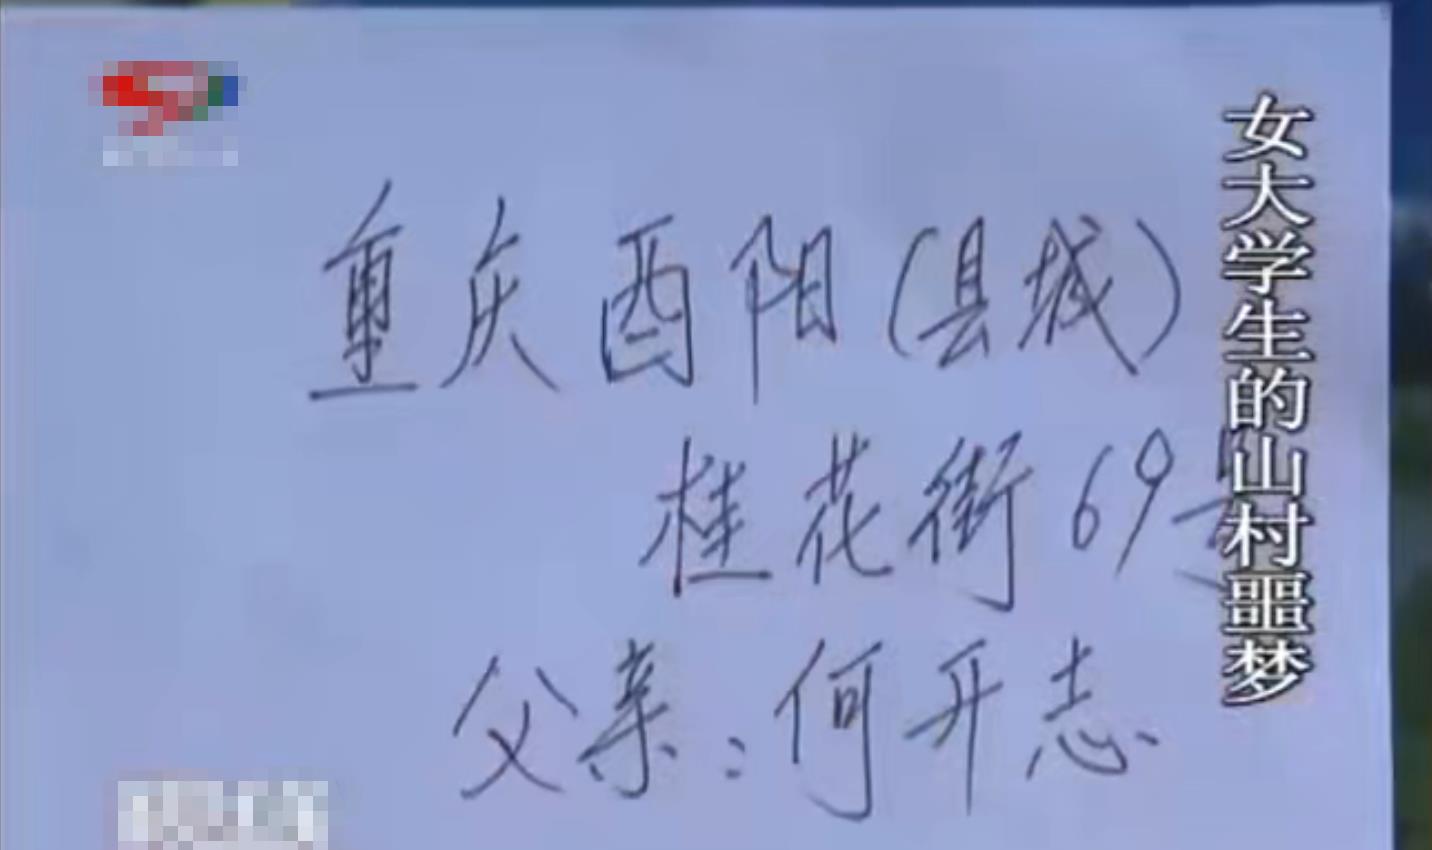 重庆酉阳（县城）
桂花街69号
父亲：何开志
女大学生的山村噩梦